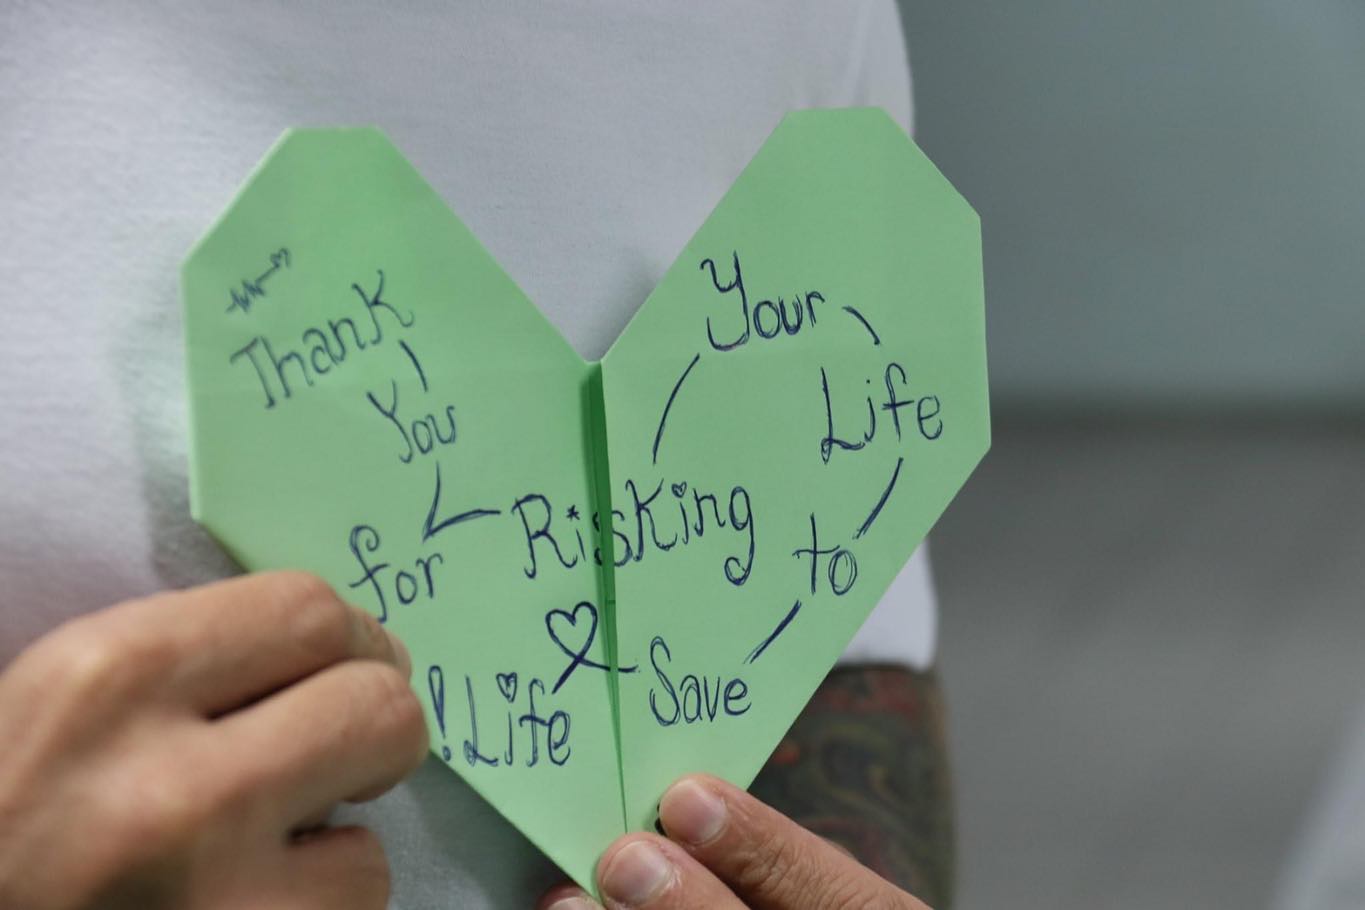 Thank
You
for
Risking
Your
Life
to
Save
Life!